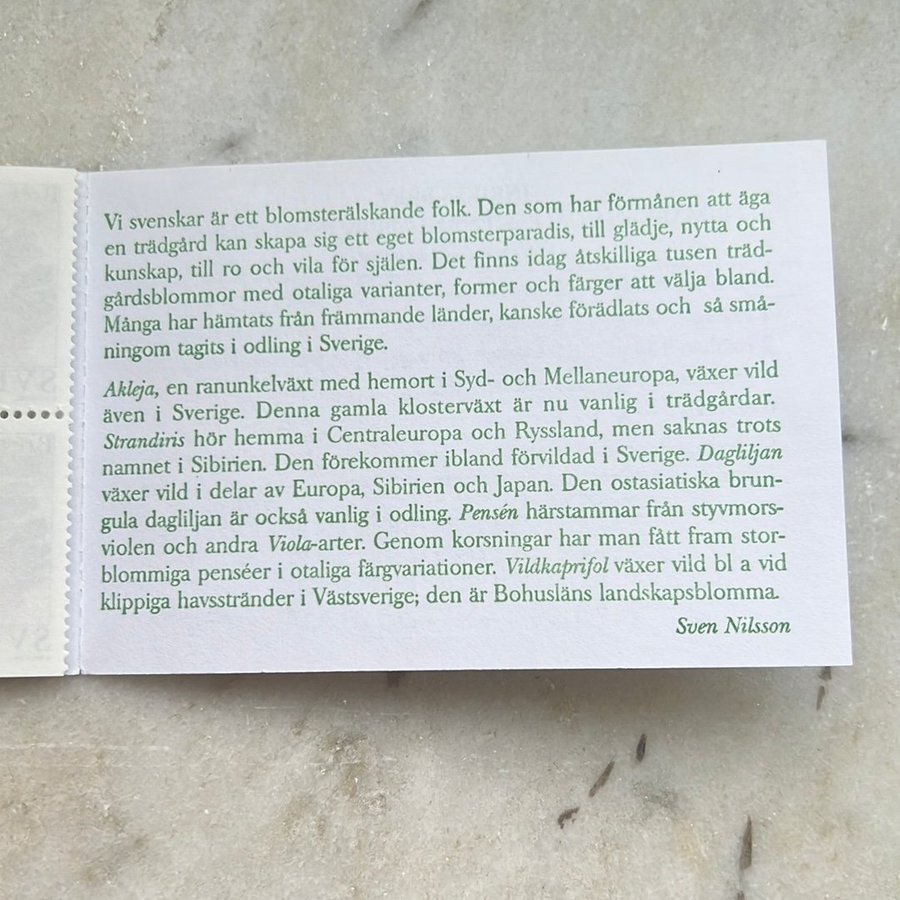 Vi svenskar är ett blomsterälskande folk. Den som har förmånen att äga
en trädgård kan skapa sig ett eget blomsterparadis, till glädje, nytta och
kunskap, till ro och vila för själen. Det finns idag åtskilliga tusen träd-
gårdsblommor med otaliga varianter, former och färger att välja bland.
Många har hämtats från främmande länder, kanske förädlats och så små-
ningom tagits i odling i Sverige.
Akleja, en ranunkelväxt med hemort i Syd- och Mellaneuropa, växer vild
även i Sverige. Denna gamla klosterväxt är nu vanlig i trädgårdar.
Strandiris hör hemma i Centraleuropa och Ryssland, men saknas trots
namnet i Sibirien. Den förekommer ibland förvildad i Sverige. Dagliljan
växer vild i delar av Europa, Sibirien och Japan. Den ostasiatiska brun-
gula dagliljan är också vanlig i odling. Pensén härstammar från styvmors-
violen och andra Viola-arter. Genom korsningar har man fått fram stor-
blommiga penséer i otaliga färgvariationer. Vildkaprifol växer vild bl a vid
klippiga havsstränder i Västsverige; den är Bohusläns landskapsblomma.
Sven Nilsson